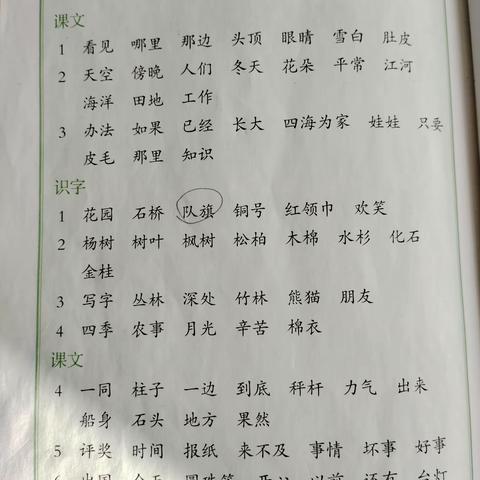 课文
1 看见 哪里 那边 头顶 眼睛 雪白 肚皮
2 天空 傍晚 人们 冬天 花朵 平常 江河
海洋 田地 工作
3 办法 如果 已经 长大 四海为家 娃娃 只要
皮毛 那里 知识
识字
1 花园 石桥 队旗 铜号 红领巾 欢笑
2 杨树 树叶 枫树 松柏 木棉 水杉 化石
金桂
3 写字 丛林 深处 竹林 熊猫 朋友
4 四季 农事 月光 辛苦 棉衣
课文
4 一同 柱子 一边 到底 秤杆 力气 出来
船身 石头 地方 果然
5 评奖 时间 报纸 来不及 事情 坏事 好事
以前 还有 台灯